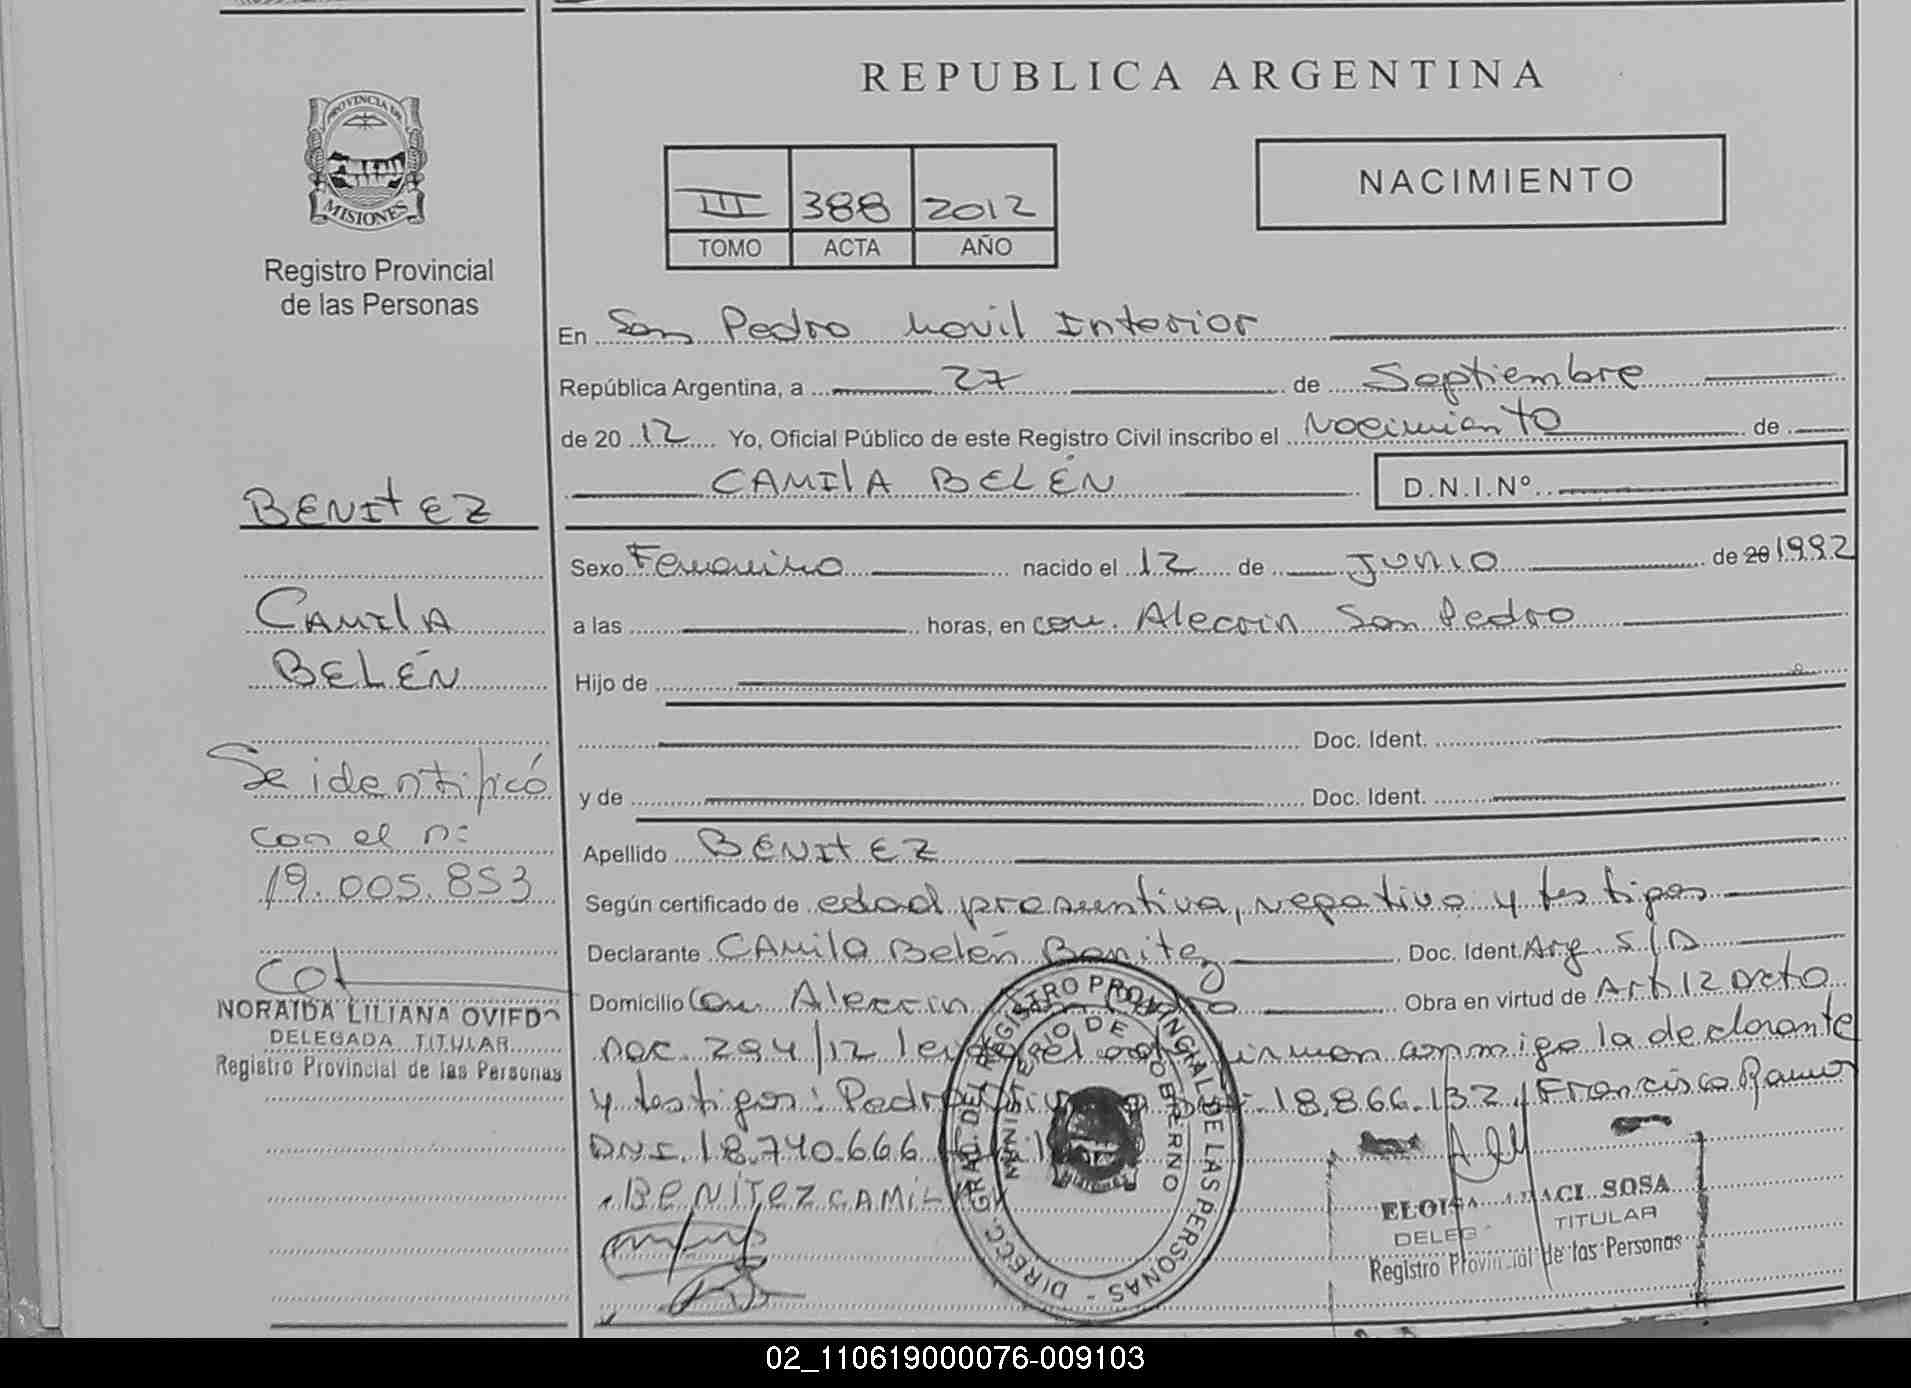 REPUBLICA ARGENTINA
PROVINCIA DE
MISIONES
Registro Provincial
de las Personas
III 388 2012
TOMO ACTA AÑO
NACIMIENTO
En San Pedro Movil Interior
República Argentina, a 27 de Septiembre
de 2012 Yo, Oficial Público de este Registro Civil inscribo el Nacimiento de
CAMILA BELÉN D.N.I.Nº
BENITEZ
CAMILA
BELÉN
Se identificó
con el nº
19.005.853
NORAIDA LILIANA OVIEDO
DELEGADA TITULAR
Registro Provincial de las Personas
Sexo Femenino nacido el 12 de JUNIO de 20 1992
a las horas, en con. Alecrin San Pedro
Hijo de
Doc. Ident.
y de Doc. Ident.
Apellido BENITEZ
Según certificado de edad presuntiva, negativo y testigos
Declarante CAMILA Belén Benitez Doc. Ident. Arg. S/D
Domicilio Con Alecrin Obra en virtud de Art 12 Dcto
nac. 294/12 leida el acta firman conmigo la declarante
y testigos: Pedro 18.866.132, Francisco Ramos
DNI. 18.740.666
BENITEZ CAMILA
DIRECC. GRAL. DEL REGISTRO PROVINCIAL DE LAS PERSONAS -
MINISTERIO DE GOBIERNO
ELOISA SOSA
TITULAR
Registro Provincial de las Personas
02_110619000076-009103